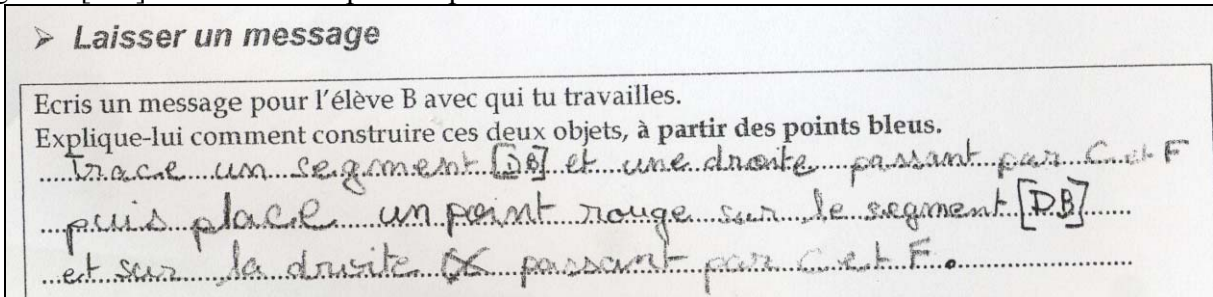 ➢ Laisser un message
Ecris un message pour l'élève B avec qui tu travailles.
Explique-lui comment construire ces deux objets, à partir des points bleus.
Trace un segment [DB] et une droite passant par C et F
puis place un point rouge sur le segment [DB]
et sur la droite passant par C et F.